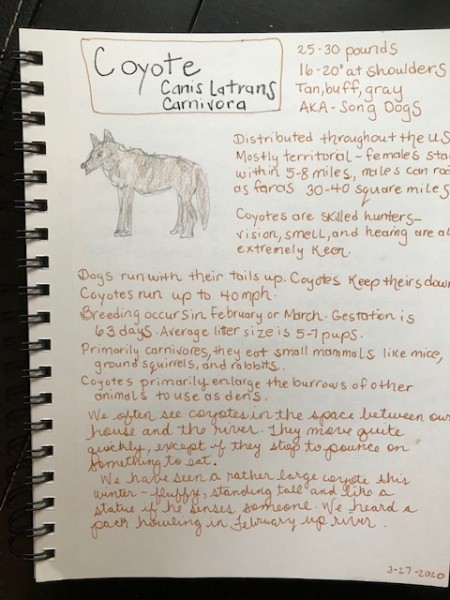 Coyote
Canis Latrans
Carnivora
25-30 pounds
16-20" at shoulders
Tan, buff, gray
AKA - Song Dogs
Distributed throughout the US
Mostly territorial - females sta
within 5-8 miles, males can roa
as far as 30-40 square miles
Coyotes are skilled hunters -
vision, smell, and hearing are al
extremely keen.
Dogs run with their tails up. Coyotes keep theirs down
Coyotes run up to 40 mph.
Breeding occurs in February or March. Gestation is
63 days. Average litter size is 5-7 pups.
Primarily carnivores, they eat small mammals like mice,
ground squirrels, and rabbits.
Coyotes primarily enlarge the burrows of other
animals to use as dens.
We often see coyotes in the space between our
house and the river. They move quite
quickly, except if they stop to pounce on
something to eat.
We have seen a rather large coyote this
winter - fluffy, standing tall and like a
statue if he senses someone. We heard a
pack howling in February up river.
3-27-2020